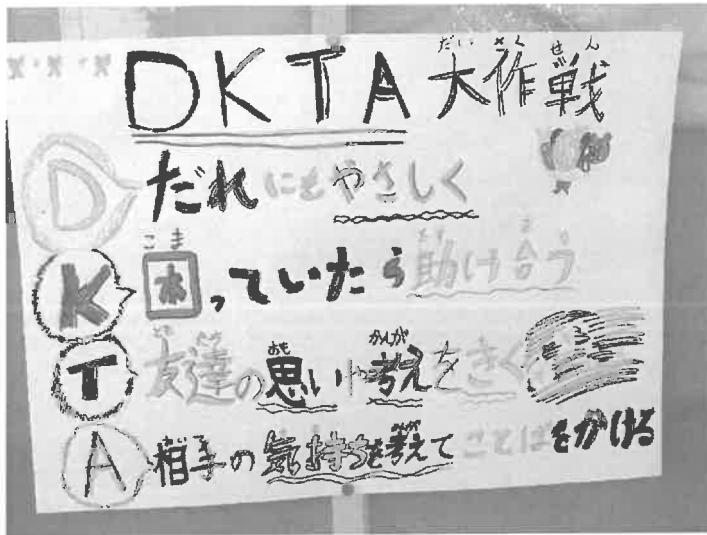 DKTA大作戦
D だれにもやさしく
K 困っていたら助け合う
T 友達の思いや考えをきく
A 相手の気持ちを考えてことばをかける